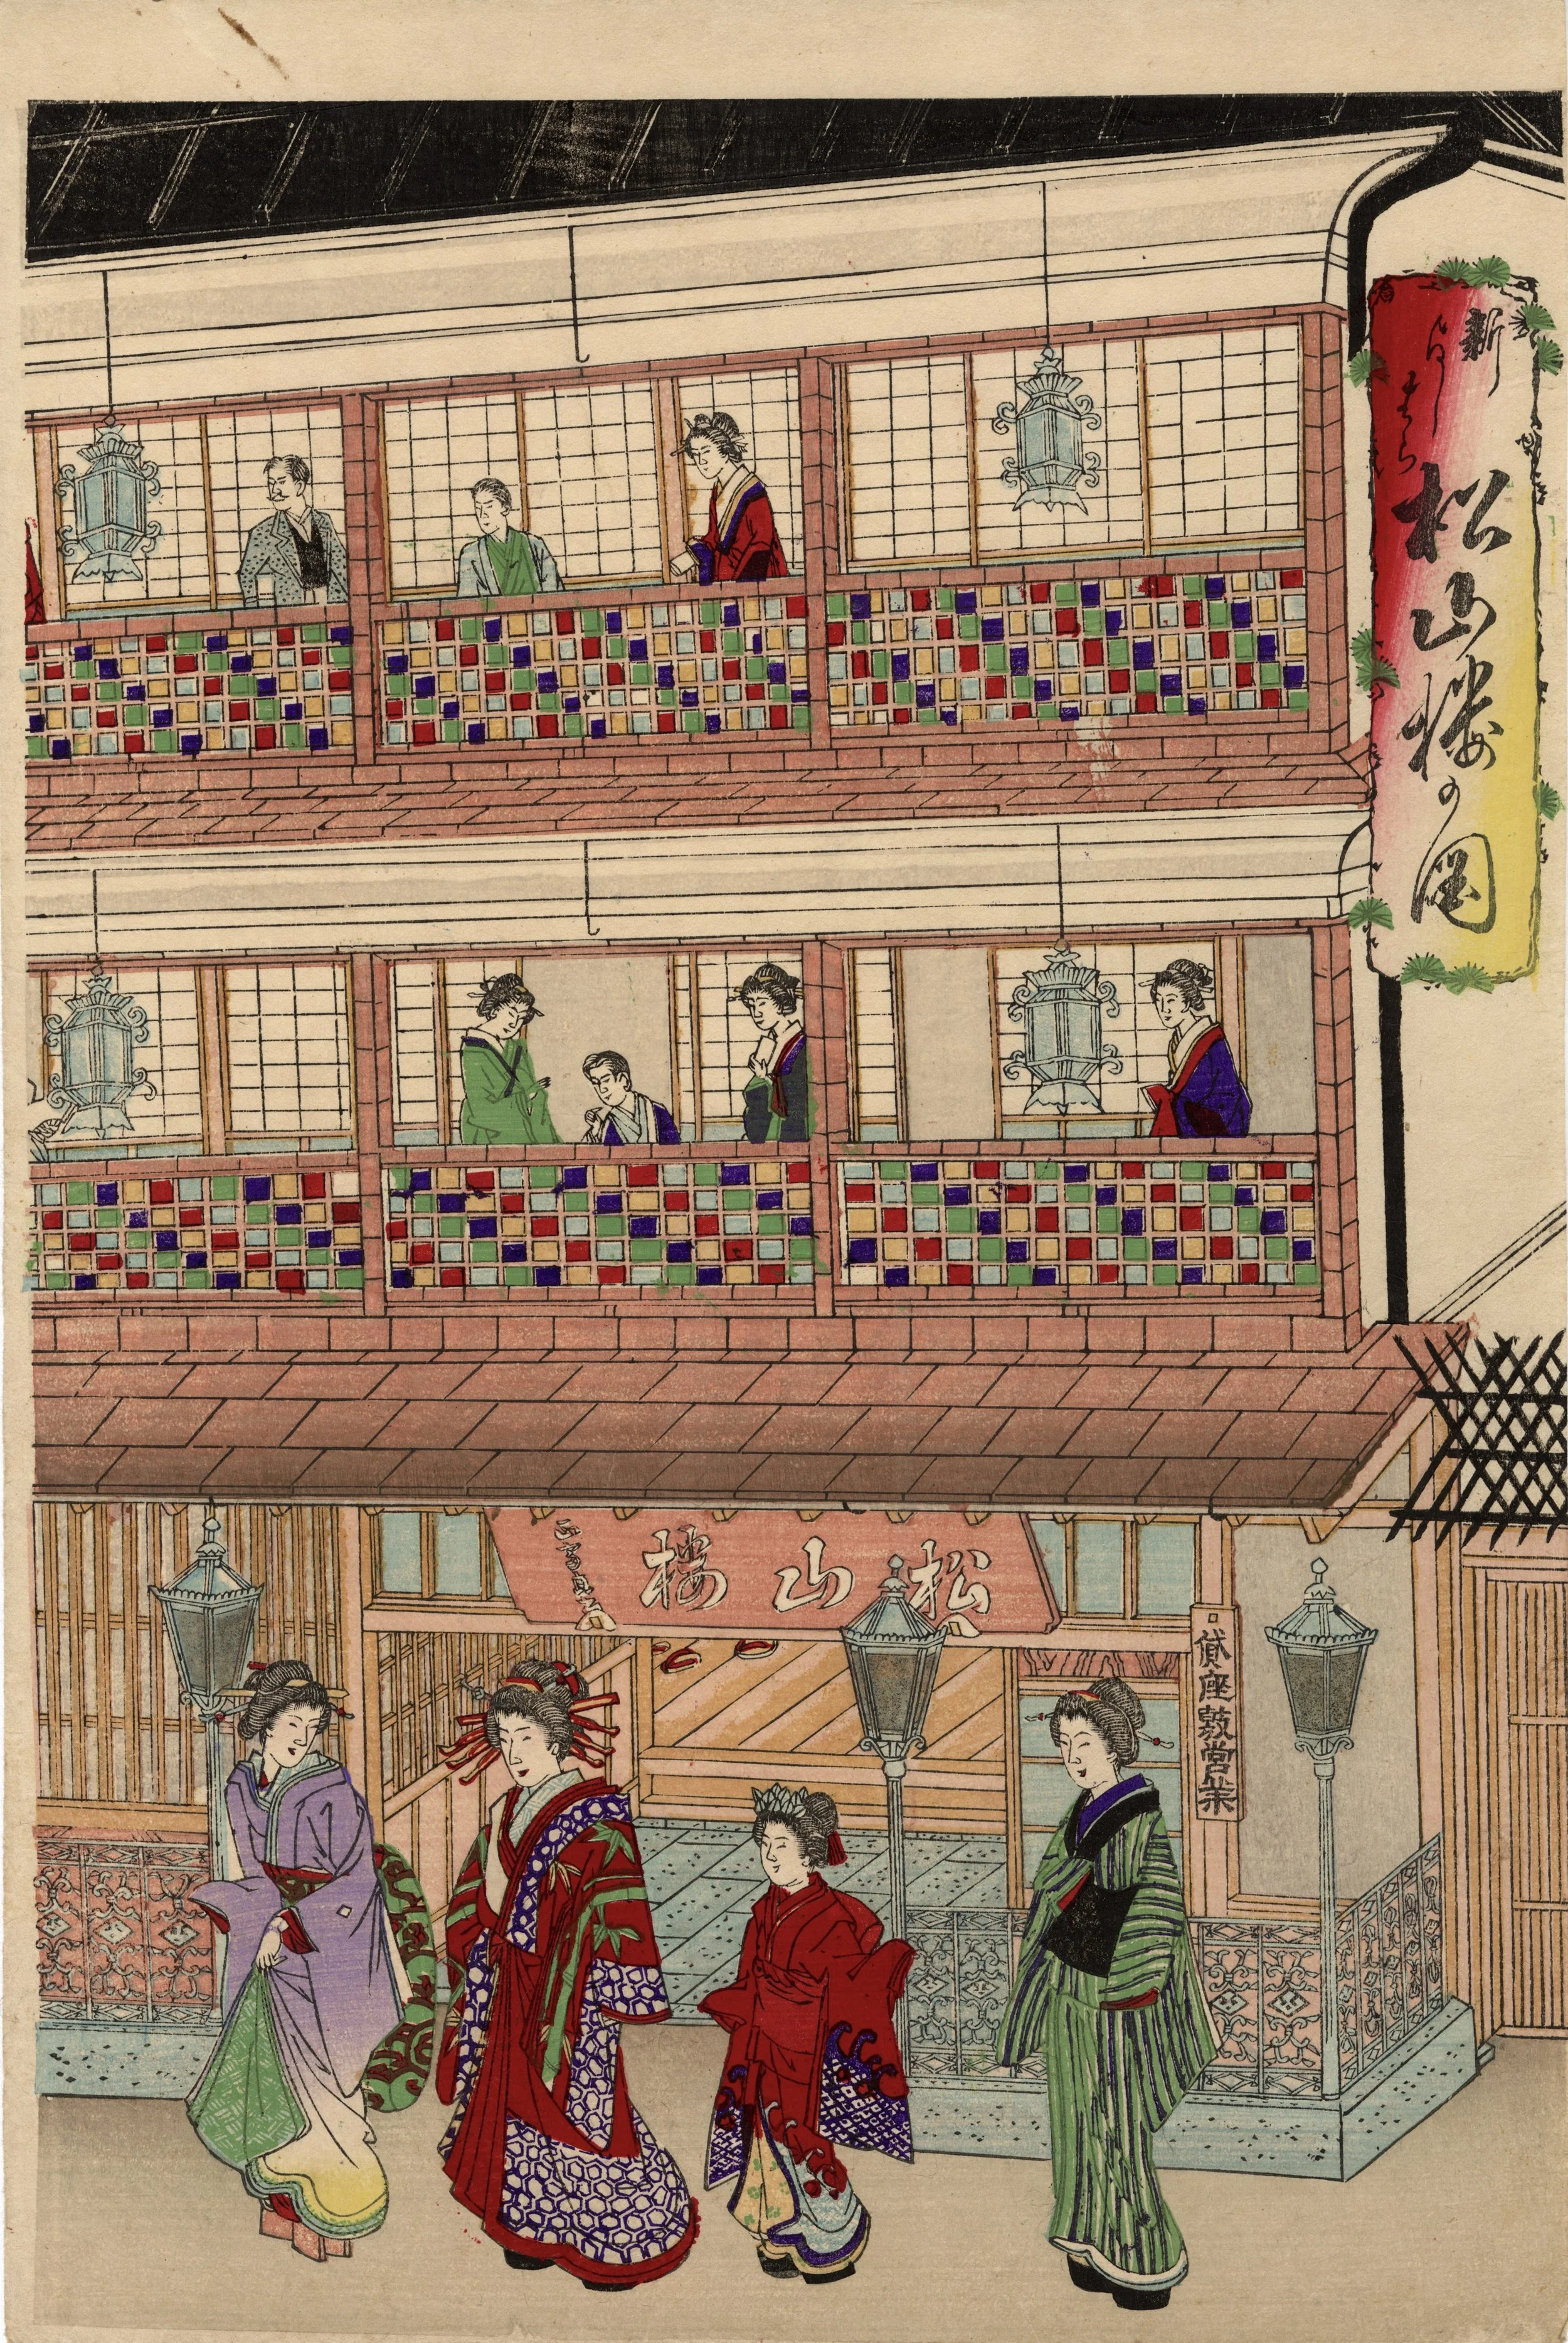 新
よしはら
松山楼の図
松山楼
貸座敷営業